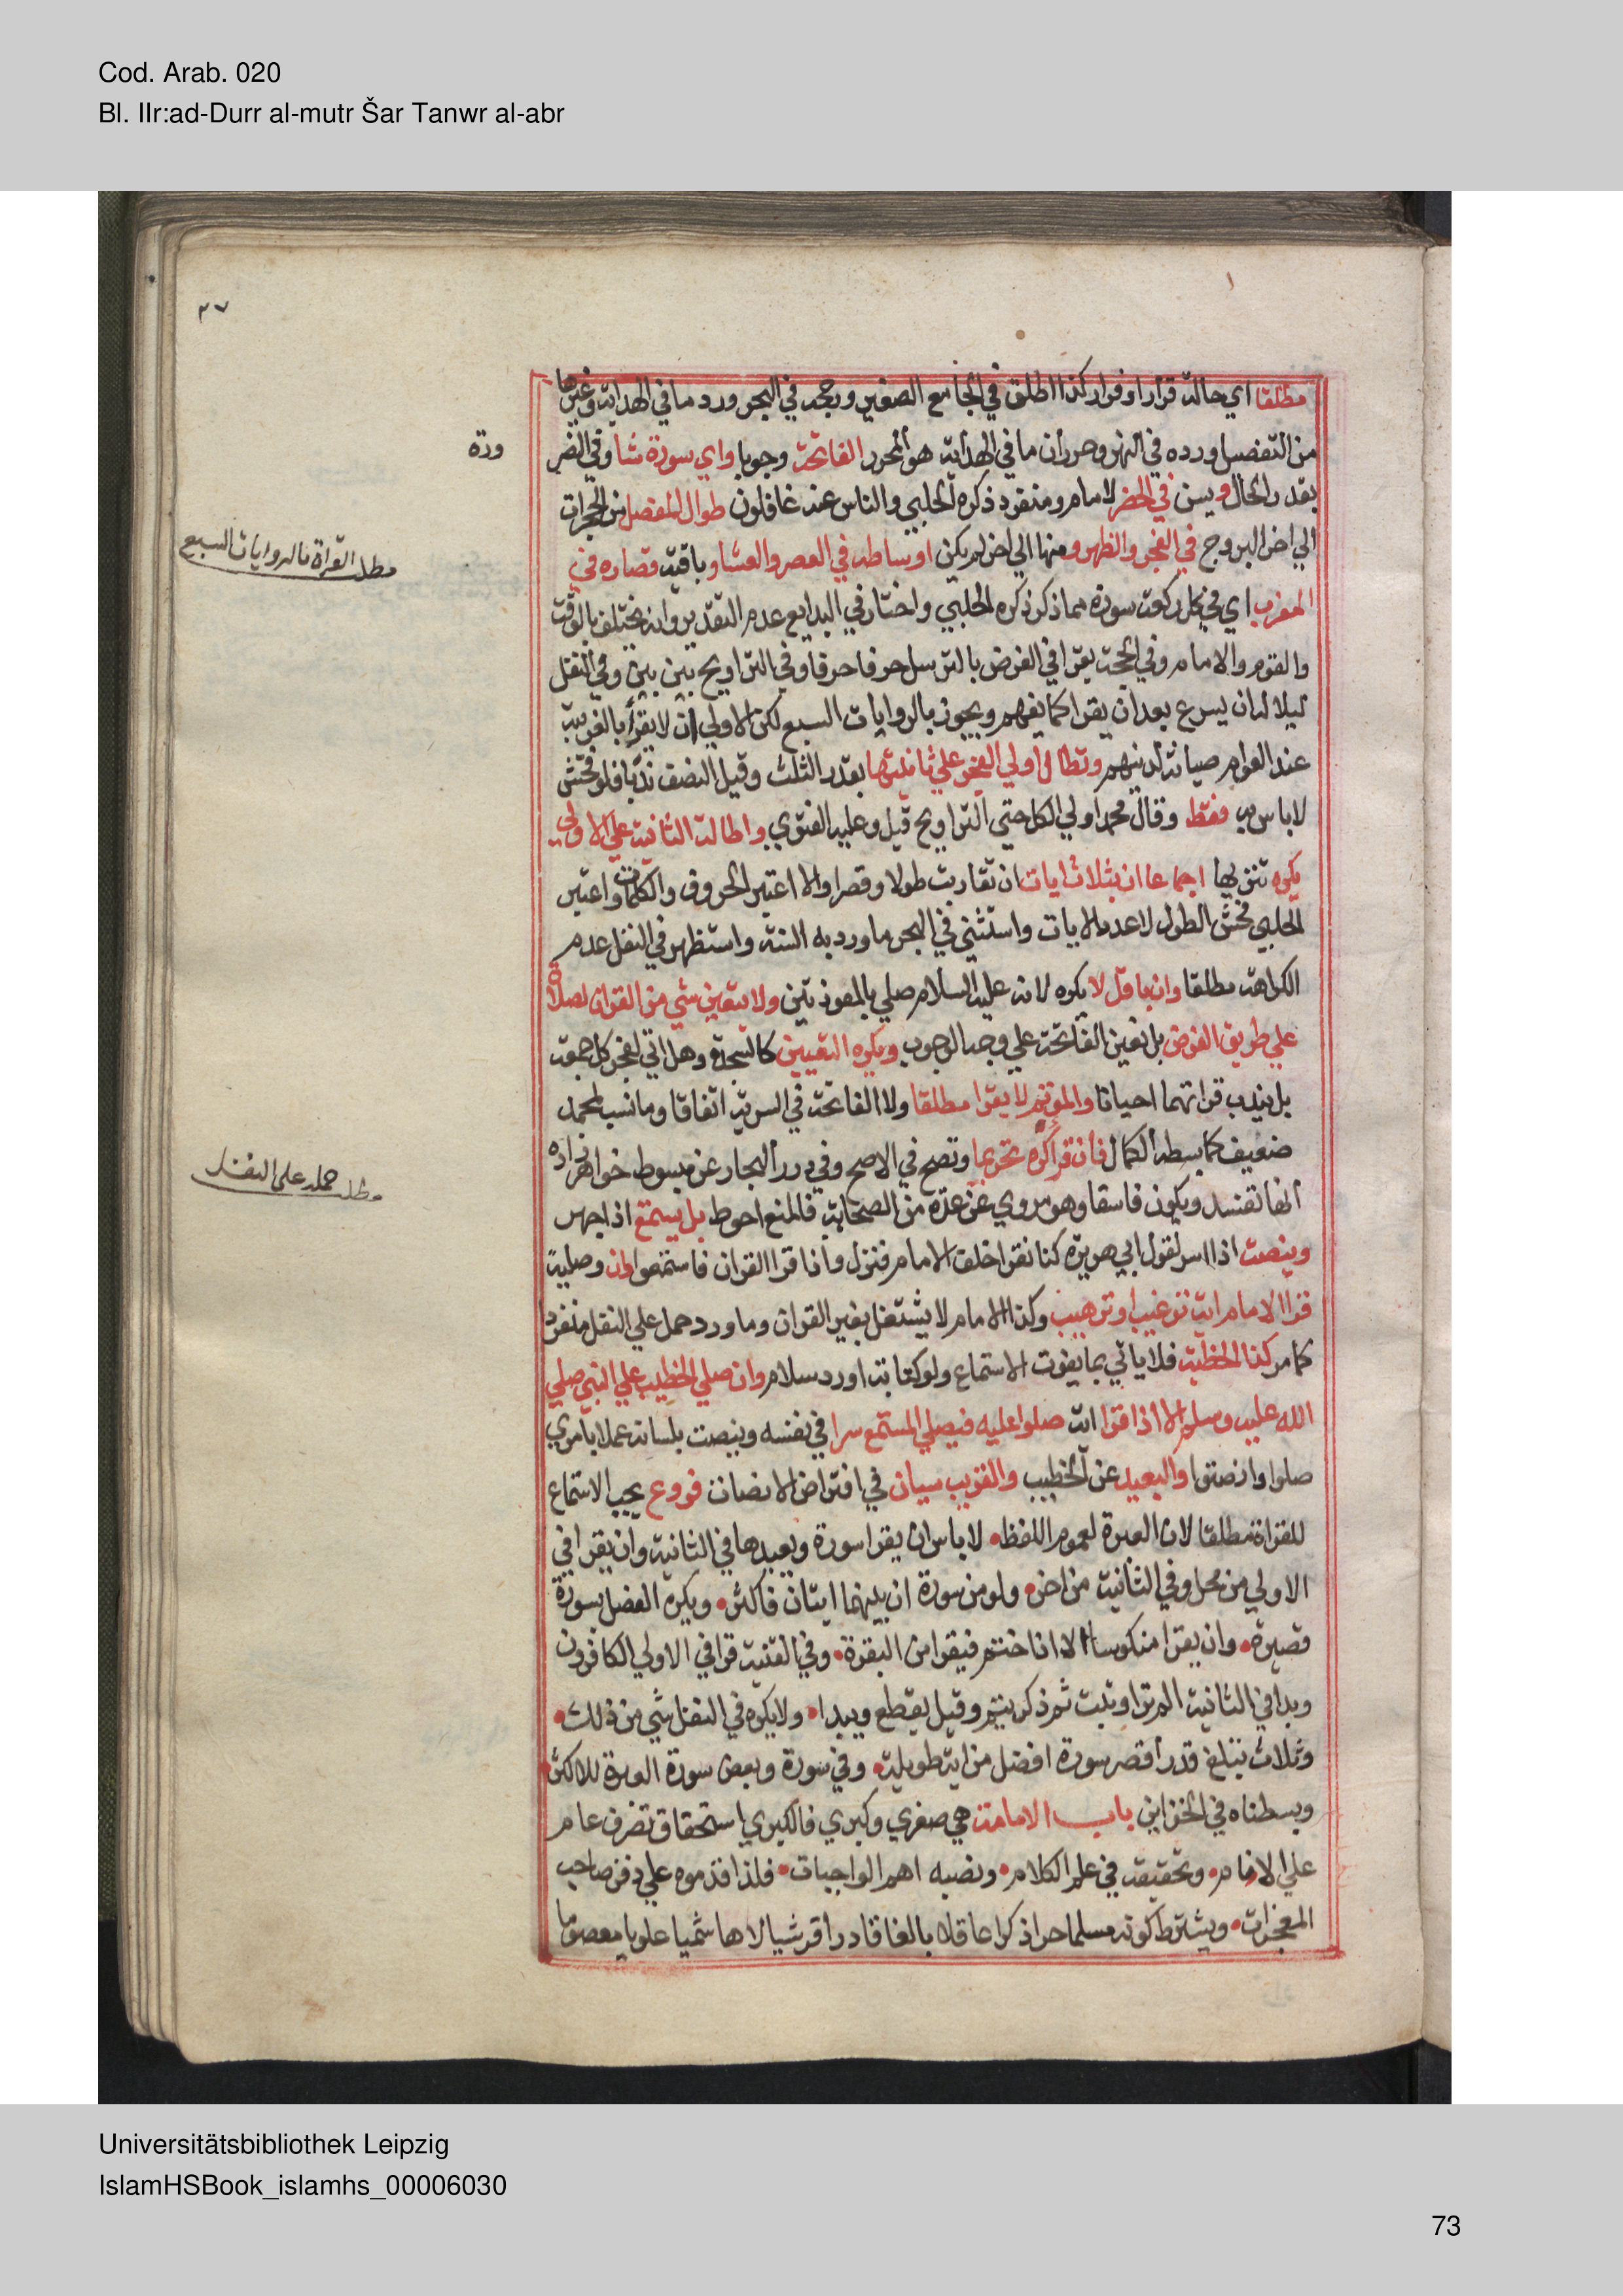 Cod. Arab. 020
Bl. IIr:ad-Durr al-mutr Šar Tanwr al-abr
٣٧
مطلقا اي حالة قرار او فرار كذا اطلق في الجامع الصغير ورجحه في البحر ورد ما في الهداية وغيرها
من التفصيل ورده في النهر وحرر ان ما في الهداية هو المحرر الفاتحة وجوبا واي سورة شا وفي الضر
ورة
بقدر الحال ويسن في الحضر لامام ومنفرد ذكره الحلبي والناس عنه غافلون طوال المفصل من الحجرات
الي اخر البروج في الفجر والظهر ومنها الي اخر لم يكن اوساطه في العصر والعشا وباقيه قصاره في
مطلب القراة بالروايات السبع
المغرب اي في كل ركعة سورة مما ذكر ذكره الحلبي واختار في البدايع عدم التقدير وانه يختلف بالوقت
والقوم والامام وفي الحجة يقرا في الفرض بالترسل حرفا حرفا وفي التراويح بين بين وفي النفل
ليلا له ان يسرع بعد ان يقرا كما يفهم ويجوز بالروايات السبع لكن الاولي ان لا يقرأ بالغريبة
عند العوام صيانة لدينهم وتطال اولي الفجر علي ثانيتها بقدر الثلث وقيل النصف ندبا فلو فحش
لا باس به فقط وقال محمد اولي الكل حتي التراويح قيل وعليه الفتوي واطالة الثانية علي الاولي
يكره تنزيها اجماعا ان بثلاث ايات ان تقاربت طولا وقصرا والا اعتبر الحروف والكلمات واعتبر
الحلبي فحش الطول لا عدد الايات واستثني في البحر ما ورد به السنة واستظهر في النفل عدم
الكراهة مطلقا وان باقل لا يكره لانه عليه السلام صلي بالمعوذتين ولا يتعين شي من القران لصلاة
علي طريق الفرض بل تعين الفاتحة علي وجه الوجوب ويكره التعيين كالسجدة وهل اتي لفجر كل جمعة
بل يندب قراتهما احيانا والمؤتم لا يقرا مطلقا ولا الفاتحة في السرية اتفاقا وما نسب لمحمد
ضعيف كما بسطه الكمال فان قرا كره تحريما وتصح في الاصح وفي درر البحار عن مبسوط خواهر زاده
مطلب حمله على النفل
انها تفسد ويكون فاسقا وهو مروي عن عدة من الصحابة فالمنع احوط بل يستمع اذا جهر
وينصت اذا اسر لقول ابي هريرة كنا نقرا خلف الامام فنزل واذا قرا القران فاستمعوا وان وصلية
قرا الامام اية ترغيب او ترهيب وكذا الامام لا يشتغل بغير القران وما ورد حمل علي النفل منفردا
كما مر كذا الخطبة فلا ياتي بما يفوت الاستماع ولو كتابة او رد سلام وان صلي الخطيب علي النبي صلي
الله عليه وسلم الا اذا قرا اية صلوا عليه فيصلي المستمع سرا في نفسه وينصت بلسانه عملا بامري
صلوا وانصتوا والبعيد عن الخطيب والقريب سيان في افتراض الانصات فروع يجب الاستماع
للقراة مطلقا لان العبرة لعموم اللفظ لا باس ان يقرا سورة ويعيدها في الثانية وان يقرا في
الاولي من محل وفي الثانية من اخر ولو من سورة ان بينهما ايتان فاكثر ويكره الفصل بسورة
قصيرة وان يقرا منكوسا الا اذا ختم فيقرا من البقرة وفي القنية قرا في الاولي الكافرون
وبدا في الثانية الم تر او تبت ثم ذكر يتم وقيل يقطع ويبدا ولا يكره في النفل شي من ذلك
وثلاث تبلغ قدر اقصر سورة افضل من اية طويلة وفي سورة وبعض سورة العبرة للاكثر
وبسطناه في الخزاين باب الامامة هي صغري وكبري فالكبري استحقاق تصرف عام
علي الانام وتحقيقه في علم الكلام ونصبه اهم الواجبات فلذا قدموه علي دفن صاحب
المعجزات ويشترط كونه مسلما حرا ذكرا عاقلا بالغا قادرا قرشيا لا هاشميا علويا معصوما
Universitätsbibliothek Leipzig
IslamHSBook_islamhs_00006030
73